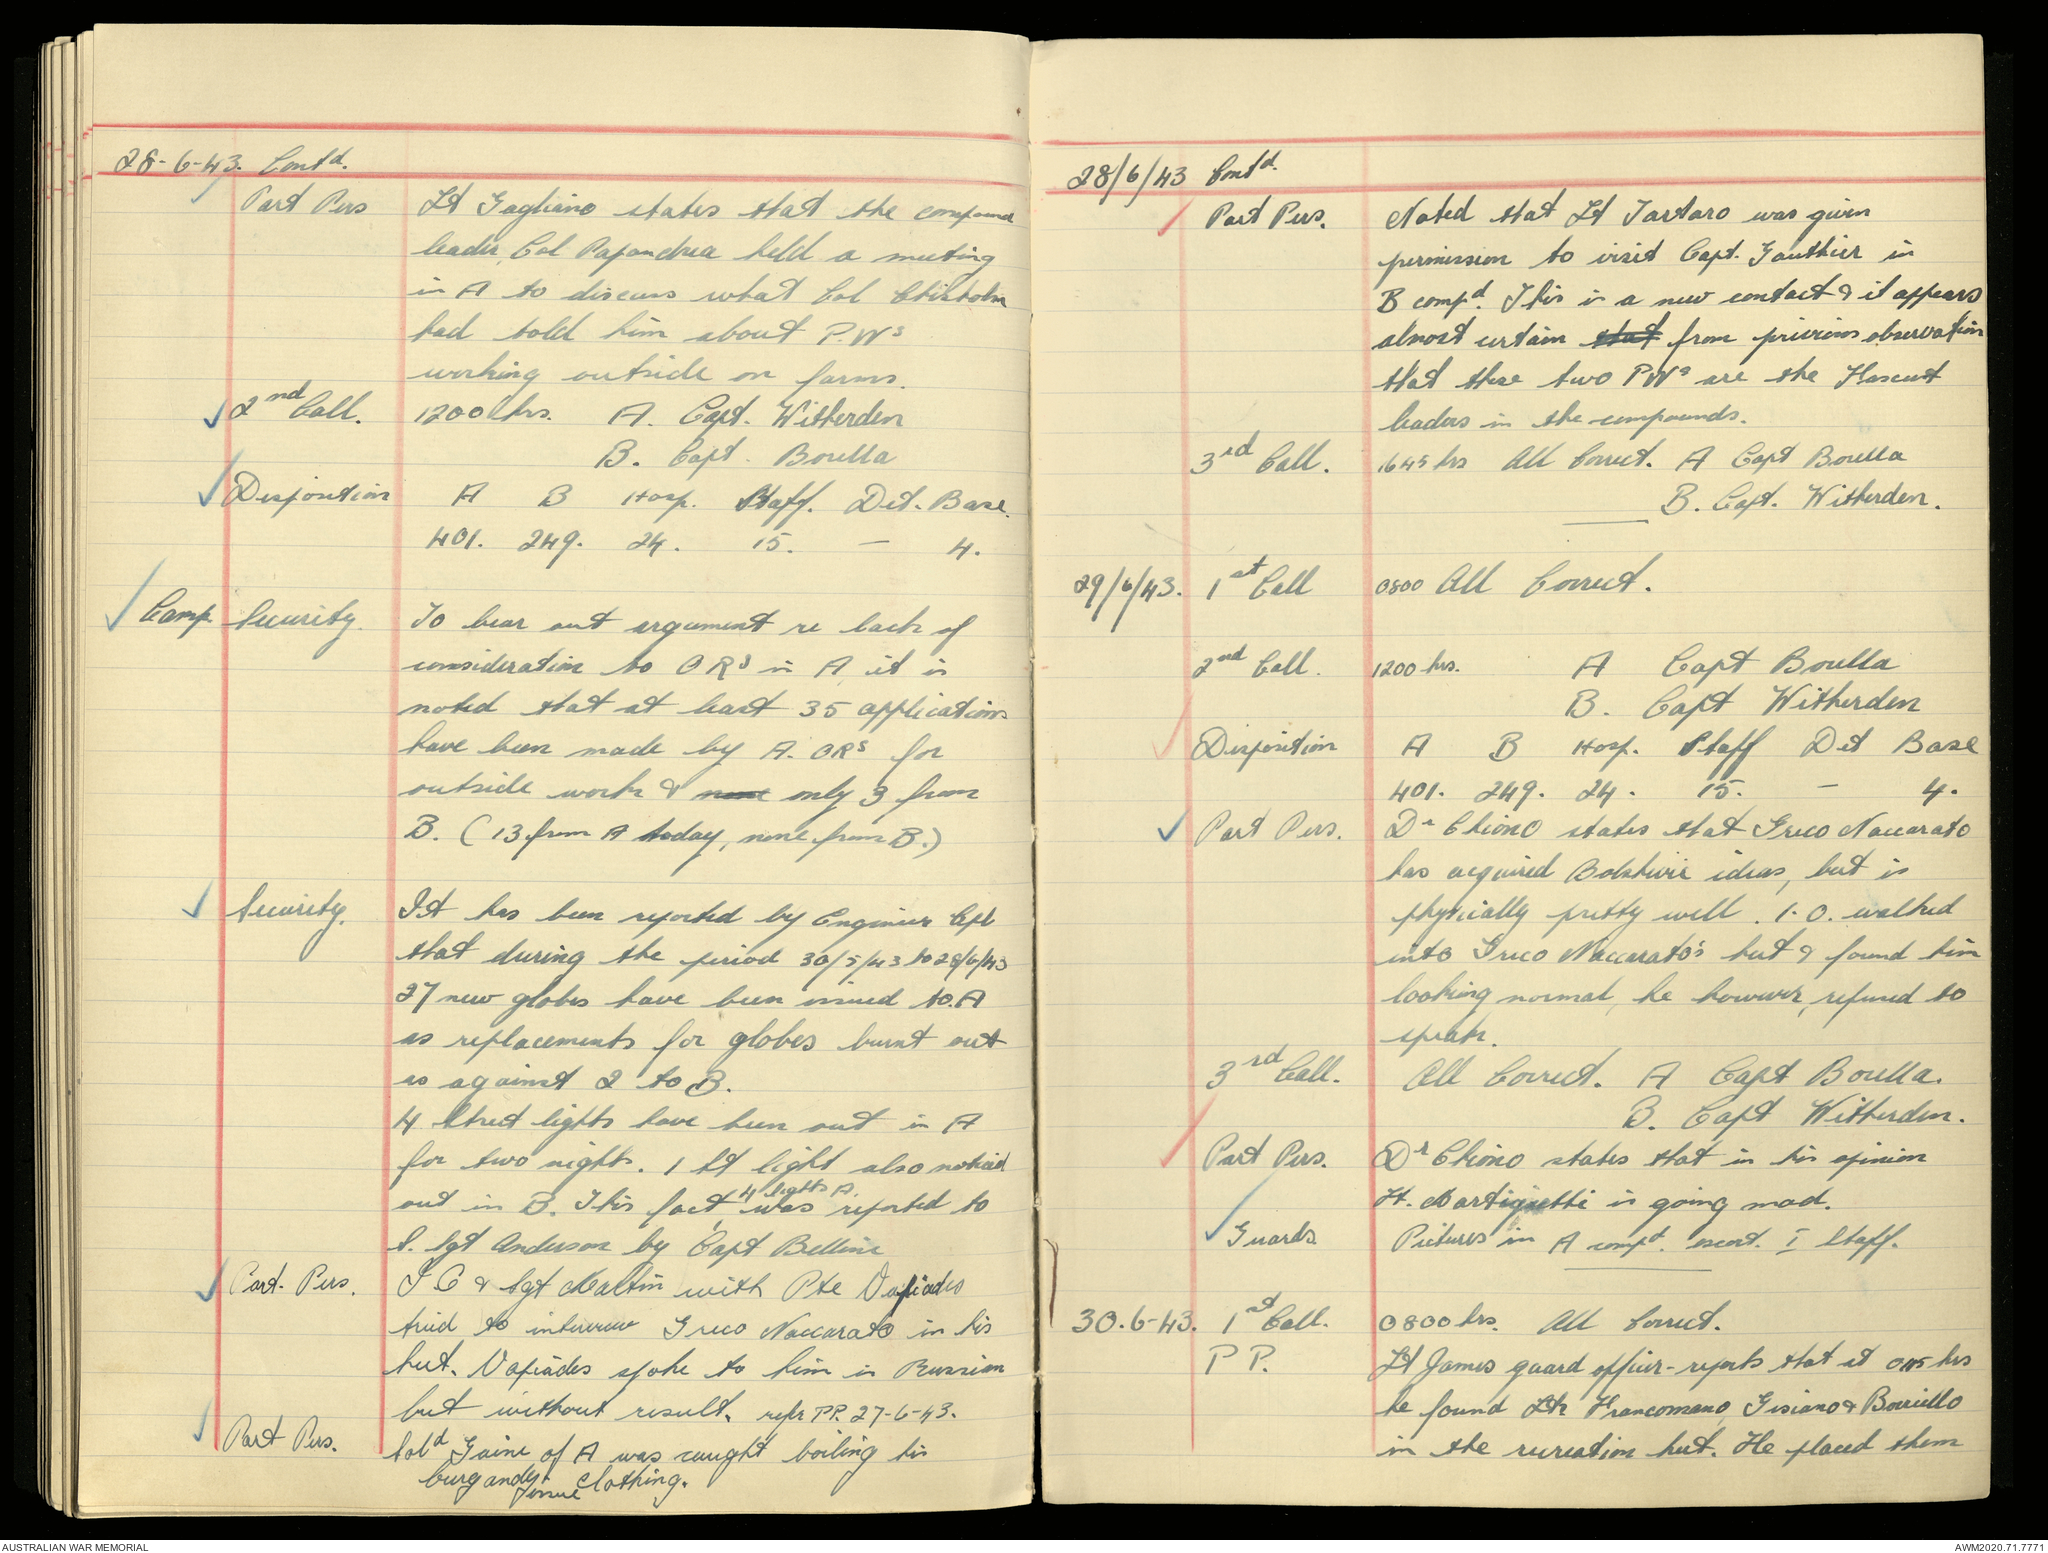 28-6-43. Contd.
Part Pers Lt Gagliano states that the compound
leader, Col Papandrea held a meeting
in A to discuss what Col Chisholm
had told him about P.Ws
working outside on farms.
2nd Call. 1200 hrs. A. Capt. Witherden
B. Capt. Borella
Disposition A B Hosp. Staff. Det. Base.
401. 249. 24. 15. — 4.
Camp Security. To bear out argument re lack of
consideration to ORs in A, it is
noted that at least 35 applications
have been made by A. ORs for
outside work & none only 3 from
B. (13 from A today, none from B.)
Security. It has been reported by Engineer Cpl
that during the period 30/5/43 to 28/6/43
27 new globes have been issued to A
as replacements for globes burnt out
as against 2 to B.
4 Street lights have been out in A
for two nights. 1 St light also noticed
out in B. This fact, 4 lights A. was reported to
S. Sgt Anderson by Capt Bellini
Part. Pers. I O & Sgt Martin with Pte Vafiades
tried to interview Greco Naccarato in his
hut. Vafiades spoke to him in Russian
but without result. refer PP. 27-6-43.
Part Pers. Sold Gaini of A was caught boiling his
burgandy issue clothing.
28/6/43 Contd.
Part Pers. Noted that Lt Tartaro was given
permission to visit Capt. Gauthier in
B compd. This is a new contact & it appears
almost certain that from previous observation
that these two PWs are the Fascist
leaders in the compounds.
3rd Call. 1645 hrs All Correct. A Capt Borella
B. Capt. Witherden.
29/6/43. 1st Call 0800 All Correct.
2nd Call. 1200 hrs. A Capt Borella
B. Capt Witherden
Disposition A B Hosp. Staff Det Base
401. 249. 24. 15. — 4.
Part Pers. Dr Chiono states that Greco Naccarato
has acquired Bolshivic ideas, but is
physically pretty well. I.O. walked
into Greco Naccarato's hut & found him
looking normal, he however, refused to
speak.
3rd Call. All Correct. A Capt Borella.
B. Capt Witherden.
Part Pers. Dr Chiono states that in his opinion
Lt. Martignetti is going mad.
Guards Pictures in A compd. escort. I Staff.
30.6-43. 1st Call. 0800 hrs. All Correct.
P P. Lt James guard officer - reports that at 0115 hrs
he found Lts Francomano, Gisiano & Borriello
in the recreation hut. He placed them
AUSTRALIAN WAR MEMORIAL
AWM2020.71.7771